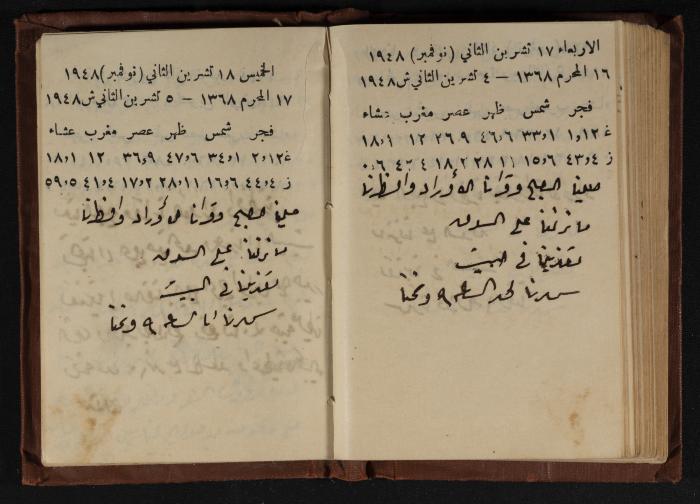 الاربعاء ١٧ تشرين الثاني (نوفمبر) ١٩٤٨
١٦ المحرم ١٣٦٨ – ٤ تشرين الثاني ش ١٩٤٨
فجر شمس ظهر عصر مغرب عشاء
غ ١٢و١ ١و٣٣ ٦و٤٦ ٩و٢٦ ١٢ ١و١٨
ز ٤و٤٣ ٦و١٥ ١١ ٢٨ ٢ ١٨ ٤
صلينا الصبح وقرأنا الأوراد وافطرنا
ما نزلنا على السوق
تغدينا في البيت
سهرنا لحد الساعه ٩ ونمنا
الخميس ١٨ تشرين الثاني (نوفمبر) ١٩٤٨
١٧ المحرم ١٣٦٨ – ٥ تشرين الثاني ش ١٩٤٨
فجر شمس ظهر عصر مغرب عشاء
غ ١٢و٢ ١و٣٤ ٦و٤٧ ٩و٣٦ ١٢ ١و١٨
ز ٤و٤٤ ٦و١٦ ١١و٢٨ ٢و١٧ ٤و٤١ ٥و٥٩
صلينا الصبح وقرأنا الأوراد وافطرنا
ما نزلنا على السوق
تغدينا في البيت
سهرنا الساعه ٩ ونمنا